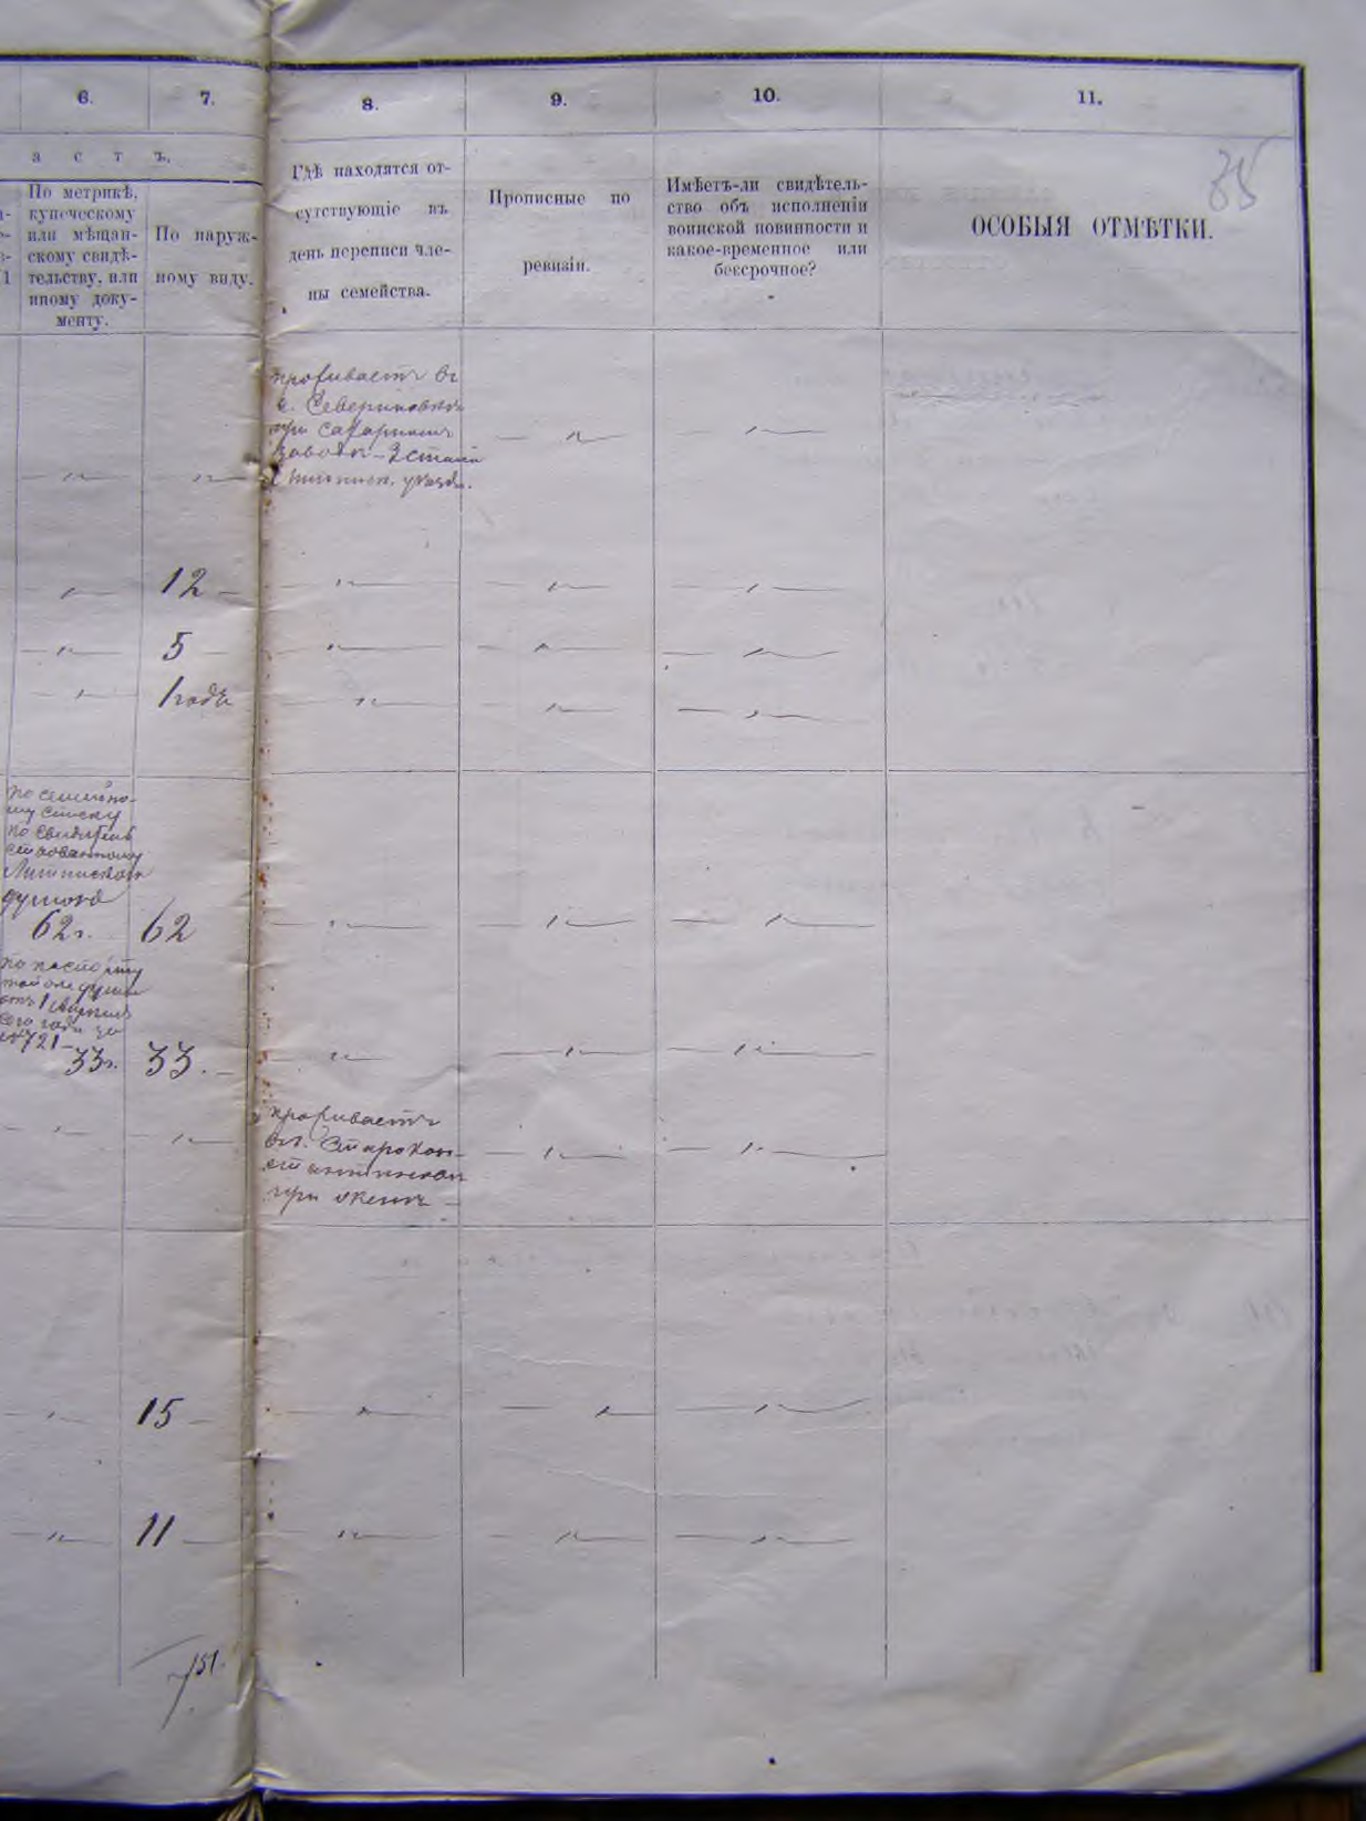 6.
7.
8.
9.
10.
11.
а с т ъ.
85
По метрикѣ,
купеческому
или мѣщан-
скому свидѣ-
тельству, или
иному доку-
менту.
По наруж-
ному виду.
Гдѣ находятся от-
сутствующіе въ
день переписи чле-
ны семейства.
Прописные по
ревизіи.
Имѣетъ-ли свидѣтель-
ство объ исполненіи
воинской повинности и
какое-временное или
безсрочное?
ОСОБЫЯ ОТМѢТКИ.
проживаетъ въ
с. Севериновкѣ
при сахарномъ
заводѣ
уѣзда.
12
5
1 годъ
по семейно-
му списку
Литинскою
думою
62г. 62
по паспорту
той же думы
сего года за
№721
33г. 33.
проживаетъ
въ г. Старокон-
стантиновѣ
при
15
11